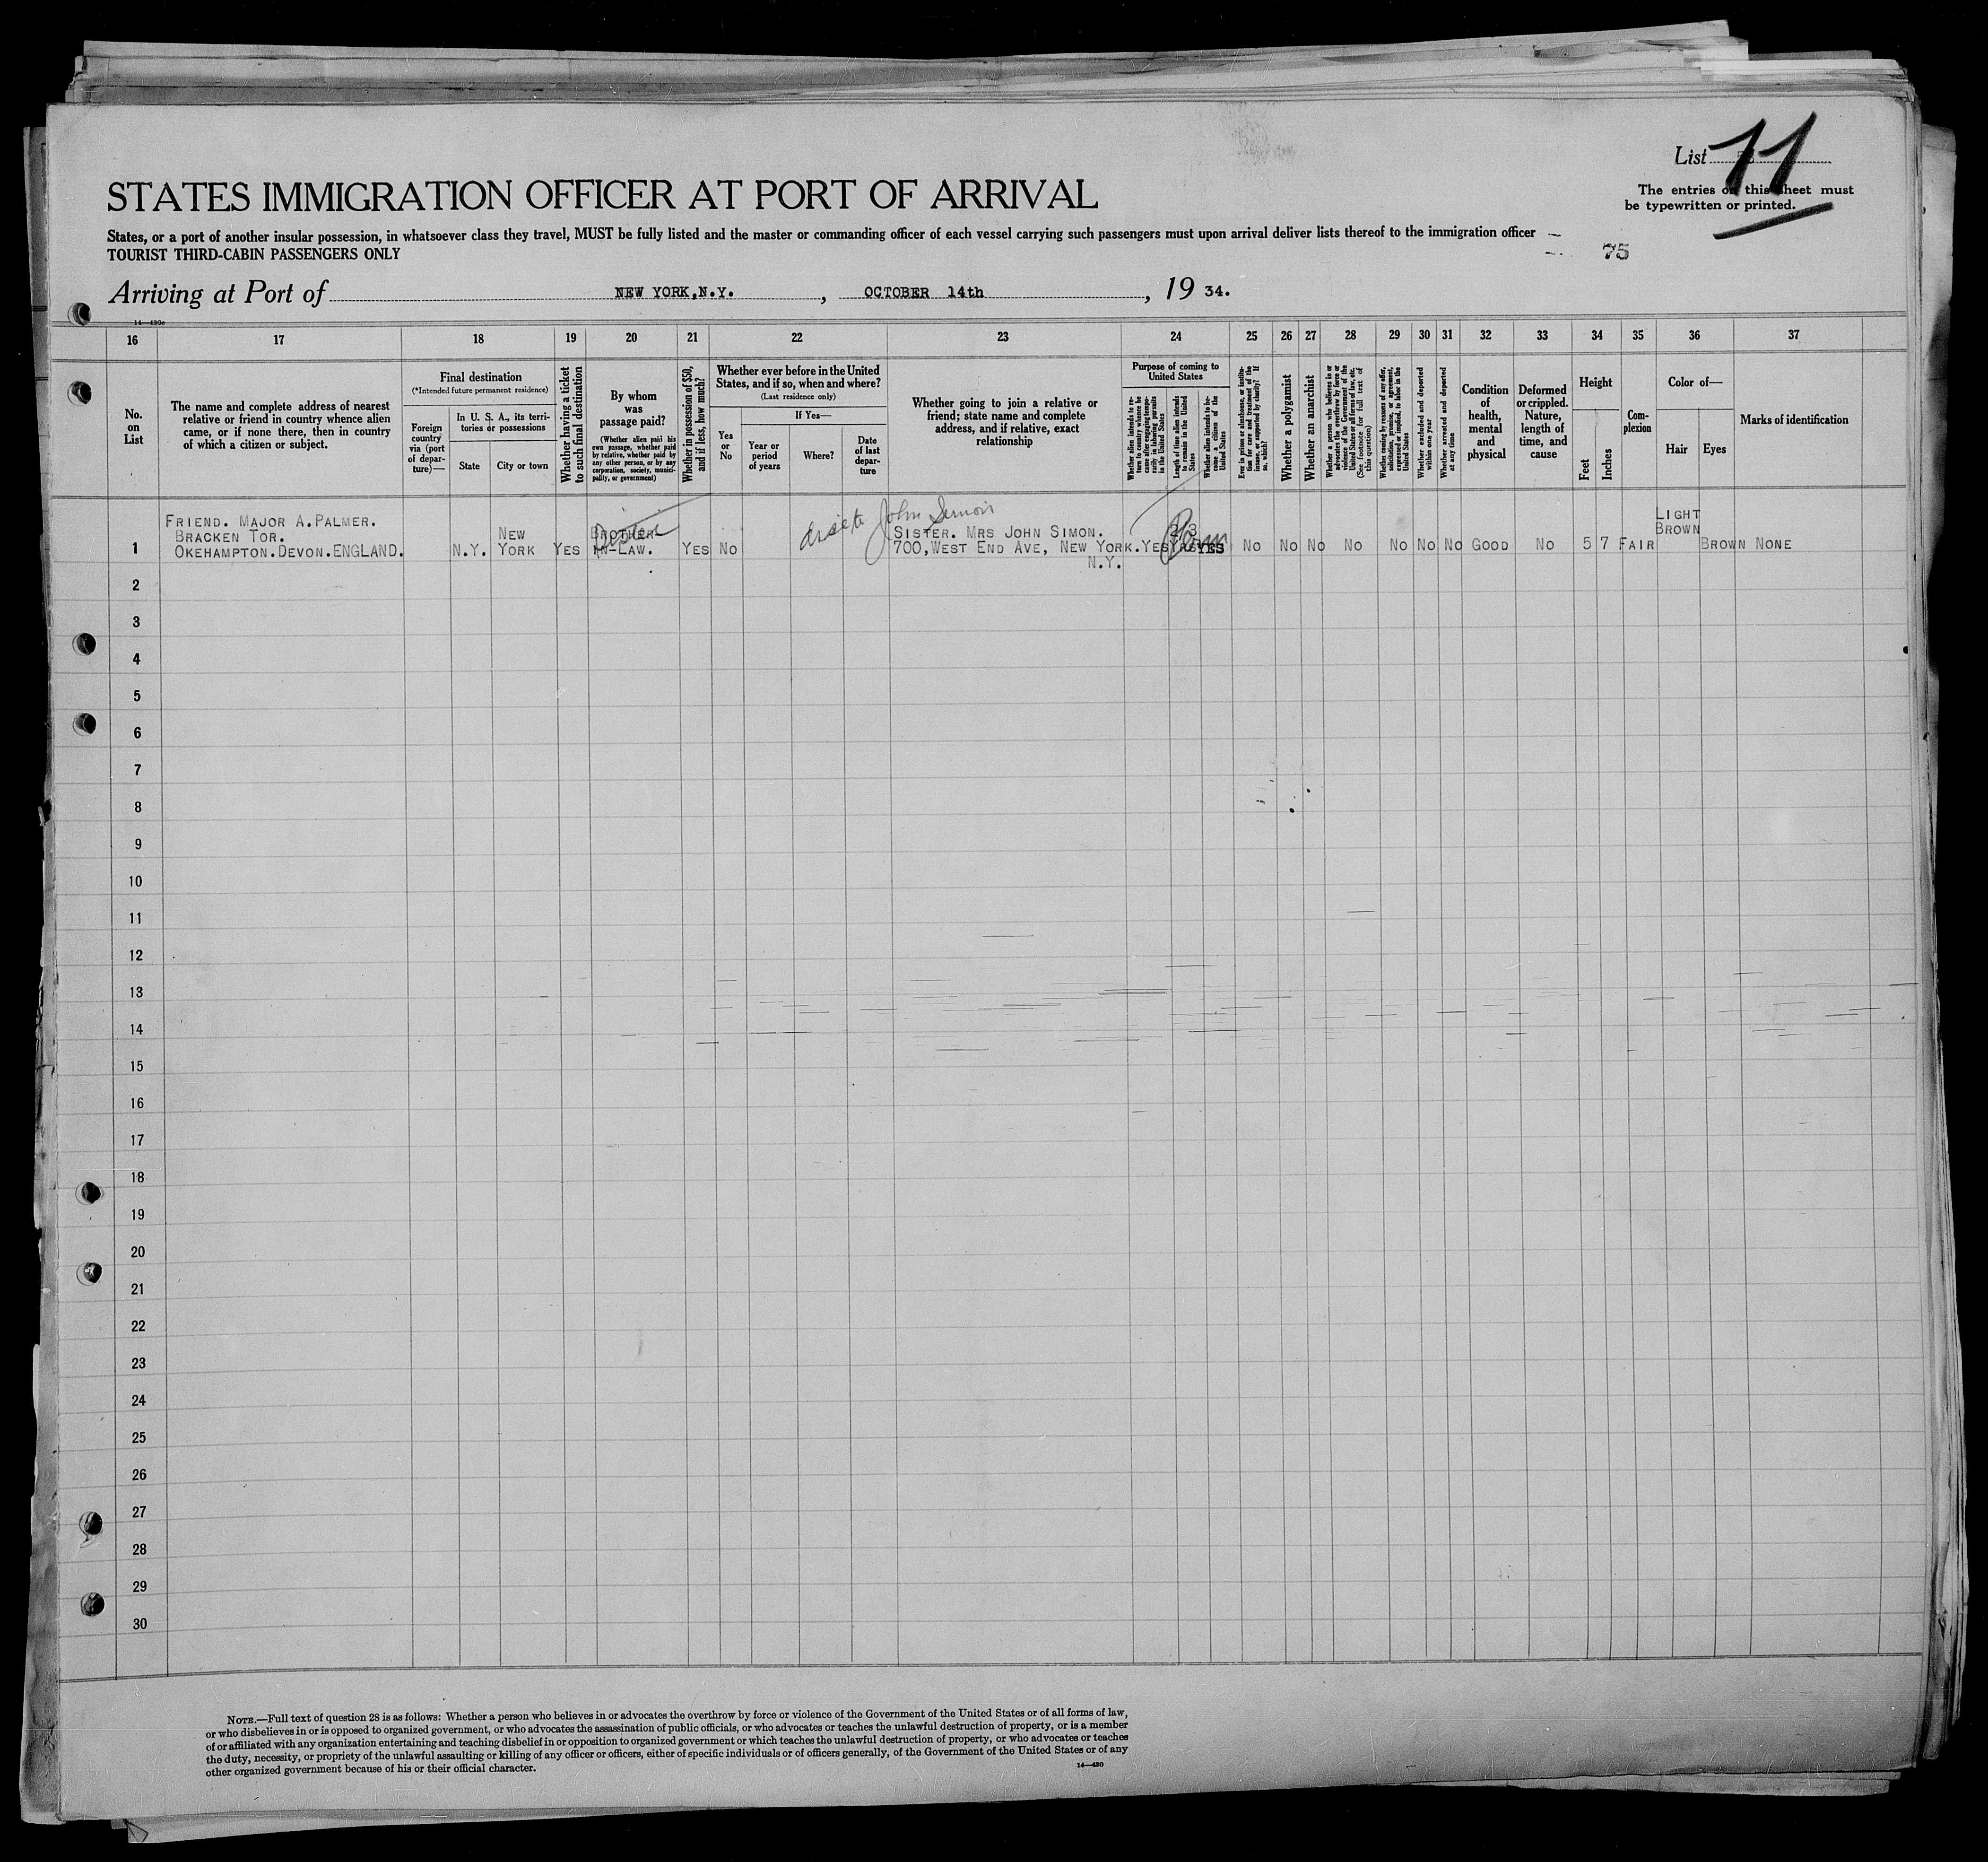 List 11
STATES IMMIGRATION OFFICER AT PORT OF ARRIVAL
The entries on this sheet must
be typewritten or printed.
States, or a port of another insular possession, in whatsoever class they travel, MUST be fully listed and the master or commanding officer of each vessel carrying such passengers must upon arrival deliver lists thereof to the immigration officer
TOURIST THIRD-CABIN PASSENGERS ONLY
75
Arriving at Port of NEW YORK,N.Y. , OCTOBER 14th , 19 34.
14—430c
16 17 18 19 20 21 22 23 24 25 26 27 28 29 30 31 32 33 34 35 36 37
No.
on
List
The name and complete address of nearest
relative or friend in country whence alien
came, or if none there, then in country
of which a citizen or subject.
Final destination
(*Intended future permanent residence)
Foreign
country
via (port
of depar-
ture)—
In U. S. A., its terri-
tories or possessions
State
City or town
Whether having a ticket
to such final destination
By whom
was
passage paid?
(Whether alien paid his
own passage, whether paid
by relative, whether paid by
any other person, or by any
corporation, society, munici-
pality, or government)
Whether in possession of $50,
and if less, how much?
Whether ever before in the United
States, and if so, when and where?
(Last residence only)
Yes
or
No
If Yes—
Year or
period
of years
Where?
Date
of last
depar-
ture
Whether going to join a relative or
friend; state name and complete
address, and if relative, exact
relationship
Purpose of coming to
United States
Whether alien intends to re-
turn to country whence he
came after engaging tempo-
rarily in laboring pursuits
in the United States
Length of time alien intends
to remain in the United
States
Whether alien intends to be-
come a citizen of the
United States
Ever in prison or almshouse, or institu-
tion for care and treatment of the
insane, or supported by charity? If
so, which?
Whether a polygamist
Whether an anarchist
Whether a person who believes in or
advocates the overthrow by force or
violence of the Government of the
United States or all forms of law, etc.
(See footnote for full text of
this question)
Whether coming by reasons of any offer,
solicitation, promise, or agreement,
expressed or implied, to labor in the
United States
Whether excluded and deported
within one year
Whether arrested and deported
at any time
Condition
of
health,
mental
and
physical
Deformed
or crippled.
Nature,
length of
time, and
cause
Height
Feet
Inches
Com-
plexion
Color of—
Hair
Eyes
Marks of identification
John Simon
FRIEND. MAJOR A.PALMER.
BRACKEN TOR.
OKEHAMPTON.DEVON.ENGLAND.
1
N.Y.
NEW
YORK
YES
BROTHER-
IN-LAW.
YES
NO
SISTER. MRS JOHN SIMON.
700,WEST END AVE, NEW YORK.
N.Y.
YES
YES
NO NO NO NO NO NO NO GOOD NO 5 7 FAIR
LIGHT
BROWN
BROWN NONE
2
3
4
5
6
7
8
9
10
11
12
13
14
15
16
17
18
19
20
21
22
23
24
25
26
27
28
29
30
NOTE.—Full text of question 28 is as follows: Whether a person who believes in or advocates the overthrow by force or violence of the Government of the United States or of all forms of law,
or who disbelieves in or is opposed to organized government, or who advocates the assassination of public officials, or who advocates or teaches the unlawful destruction of property, or is a member
of or affiliated with any organization entertaining and teaching disbelief in or opposition to organized government or which teaches the unlawful destruction of property, or who advocates or teaches
the duty, necessity, or propriety of the unlawful assaulting or killing of any officer or officers, either of specific individuals or of officers generally, of the Government of the United States or of any
other organized government because of his or their official character.
14—430